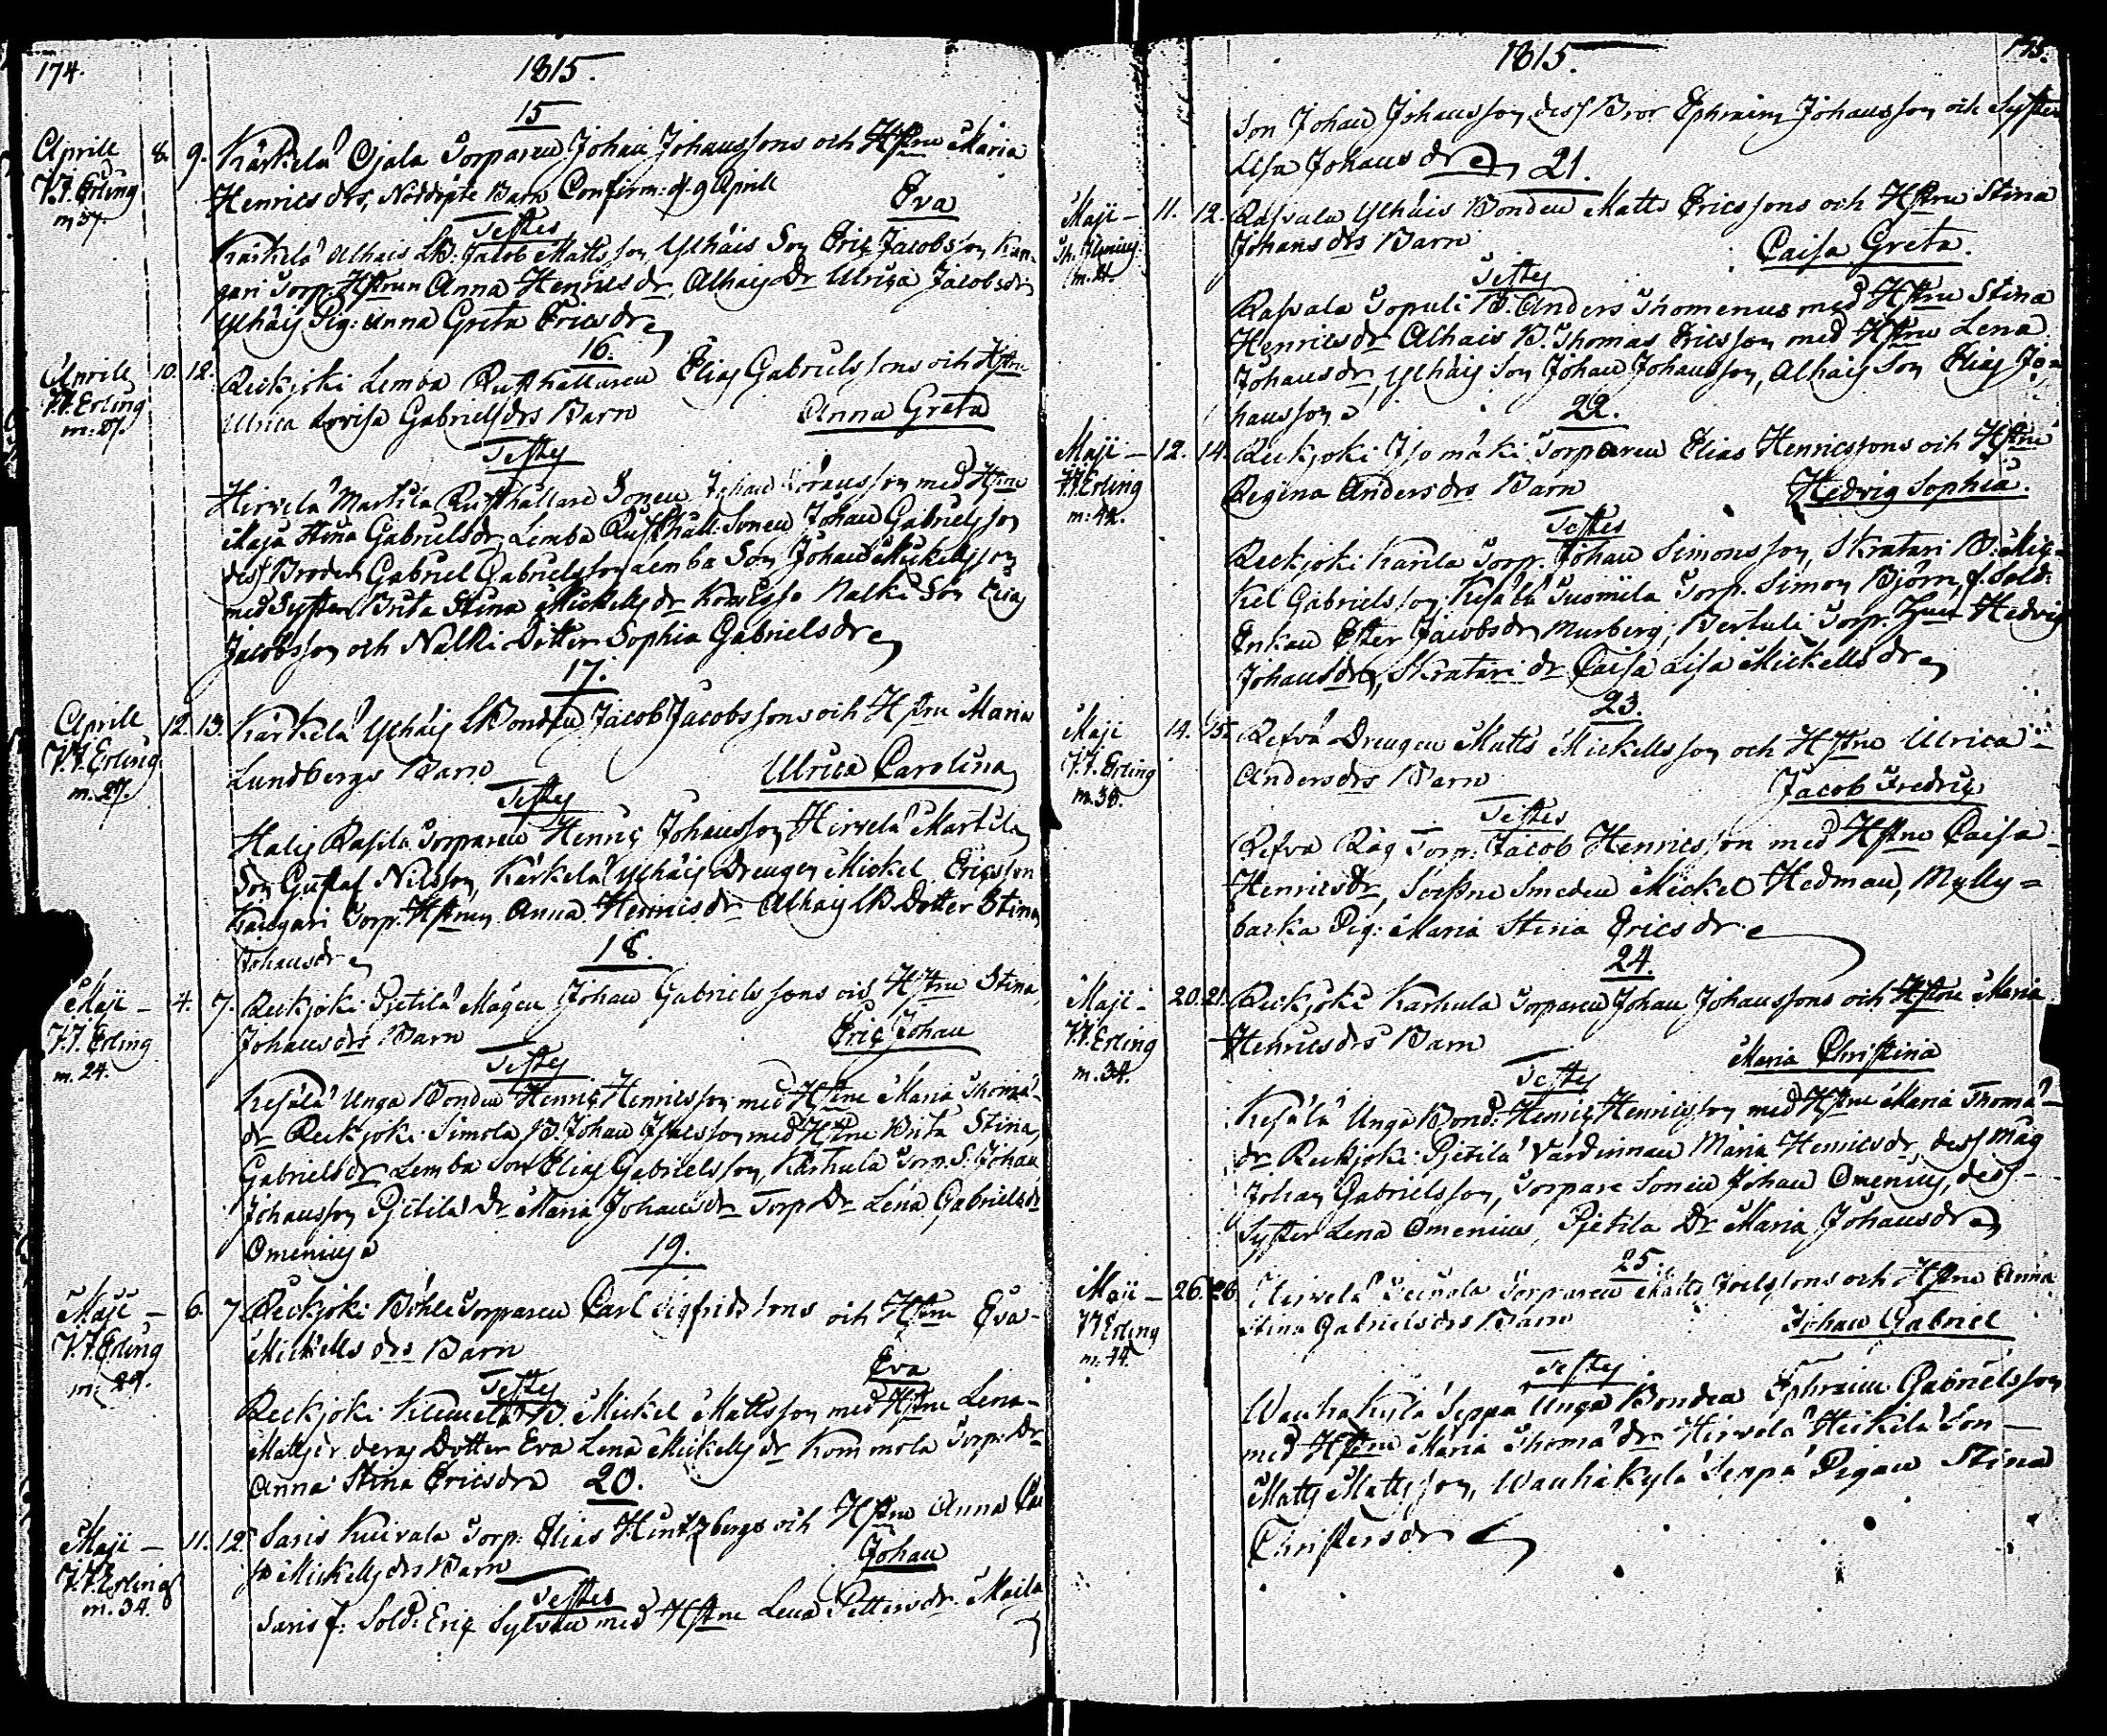 174.
1815.
15
Aprill 8. 9. Kärkelä Ojala Torparen Johan Johanssons och Hstru Maria
V.V. Erling Henricsdrs, Nöddöpte Barn Confirm: d. 9 Aprill Eva
m 37.
Testes
Kärkelä Alhais LB. Jacob Matsson, Ylhäis Son Eric Jacobsson Kan-
gari Torp. Hstrun Anna Henricsdr, Alhais Dr Ulrica Jacobsdr
Ylhäis Pig: Anna Greta Ericsdr
16.
Aprill 10. 12. Reckjoki Lemba Rusthållaren Elias Gabrielssons och Hstru
V.V. Erling Ulrica Lovisa Gabrielsdrs Barn Anna Greta
m: 27.
Testes
Hirvelä Martila Rusthållare Sonen Johan Göransson med Hstru
Maja Stina Gabrielsdr, Lemba Rusthåll: Sonen Johan Gabrielsson
dess Broder Gabriel Gabrielsson Lemba Son Johan Mickellsson
med Syster Brita Stina Mickellsdr Nalki Son Elias
Jacobsson och Nalki Dotter Sophia Gabrielsdr
17.
Aprill 12. 13. Kärkelä Ylhäis LBonden Jacob Jacobssons och Hstru Maria
V.V. Erling Lundbergs Barn Ulrica Carolina
m. 27.
Testes
Halis Rasila Torparen Henric Johansson Hirvelä Martila
Son Gustaf Nilsson, Kärkelä Ylhäis Drengen Mickel Ericsson
Kangari Torp. Hstrun Anna Henricsdr Alhais LB. Dotter Stina
Johansdr
18.
Maji – 4. 7. Reckjoki Pietilä Mågen Johan Gabrielssons och Hstru Stina
V.V. Erling Johansdrs Barn Eric Johan
m. 24.
Testes
Kesälä Unga Bonden Henric Henricsson med Hstru Maria Thomä-
dr Reckjoki Simola B. Johan med Hstru Brita Stina
Gabrielsdr Lemba Son Elias Gabrielsson, Karhula Torp. S. Johan
Johansson Pietilä Dr Maria Johansdr Torp Dr Lena Gabrielsdr
Omenius
19.
Maji – 6. 7 Reckjoki Böhle Torparen Carl Sigfridssons och Hstru Eva
V.V. Erling Mickells drs Barn Eva
m: 29.
Testes
Reckjoki Klemelä B. Mickel Mattsson med Hstru Lena
Mattsdr deras Dotter Eva Lena Mickellsdr Kommola Torp: Dr
Anna Stina Ericsdr
20.
Maji – 11. 12. Saris Kuivala Torp: Elias Hintzbergs och Hstru Anna Cai
V.V. Erling sa Mickellsdrs Barn Johan
m. 34.
Testes
Saris f: Sold: Eric Sylvan med Hstru Lena Pettersdr. Maila
1815.
175.
Son Johan Johansson dess Bror Ephraim Johansson och Syster
Lisa Johansdr
21.
Maji – 11. 12. Rasvala Ylhäis Bonden Matts Ericssons och Hstru Stina
Johansdrs Barn Caisa Greta.
m. 21.
Testes
Rasvala Sopuli B. Anders Thomenius med Hstru Stina
Henricsdr Alhais B. Thomas Ericsson med Hstru Lena
Johansdr, Ylhäis Son Johan Johansson, Alhais Son Elias Jo-
hansson
22.
Maji – 12. 14. Reckjoki Isomäki Torparen Elias Henricssons och Hstru
V.V. Erling Regina Andersdrs Barn Hedvig Sophia.
m: 42.
Testes
Reckjoki Karila Torp. Johan Simonsson, Skratari B. Mic-
kel Gabrielsson, Kesälä Suomila Torp. Simon Björn, f. Sold:
Enkan Ester Jacobsdr Murberg, Bertuli Torp. Hedvig
Johansdr, Skratari dr Caisa Lisa Mickellsdr
23.
Maji 14. 15. Refvä Drengen Matts Mickellsson och Hstru Ulrica
V.V. Erling Andersdrs Barn Jacob Fredric
m. 30.
Testes
Refva Råg Torp. Jacob Henricsson med Hstru Caisa
Henricsdr, Sockne Smeden Mickel Hedman, Mylly=
barka Pig: Maria Stina Ericsdr
24.
Maji – 20. 21. Reckjoki Karhula Torparen Johan Johanssons och Hstru Maria
V.V. Erling Henricsdrs Barn Maria Christina
m. 34.
Testes
Kesälä Unga Bond: Henric Henricsson med Hstru Maria Thomä-
dr Reckjoki Pietilä Värdinnan Maria Henricsdr, dess Måg
Johan Gabrielsson, Torpare Sonen Johan Omenius, dess
Syster Lena Omenius, Pietilä Dr Maria Johansdr
25.
Maji – 26. 28. Hirvelä Torparen Matts Joelssons och Hstru Anna
V.V. Erling Stina Gabrielsdrs Barn Johan Gabriel
m. 44.
Testes
Wanhakylä Seppä Unga Bonden Ephraim Gabrielsson
med Hstru Maria Thomä dr Hirvelä Heikilä Son
Matts Mattsson, Wanhakylä Seppä Pigan Stina
Christersdr